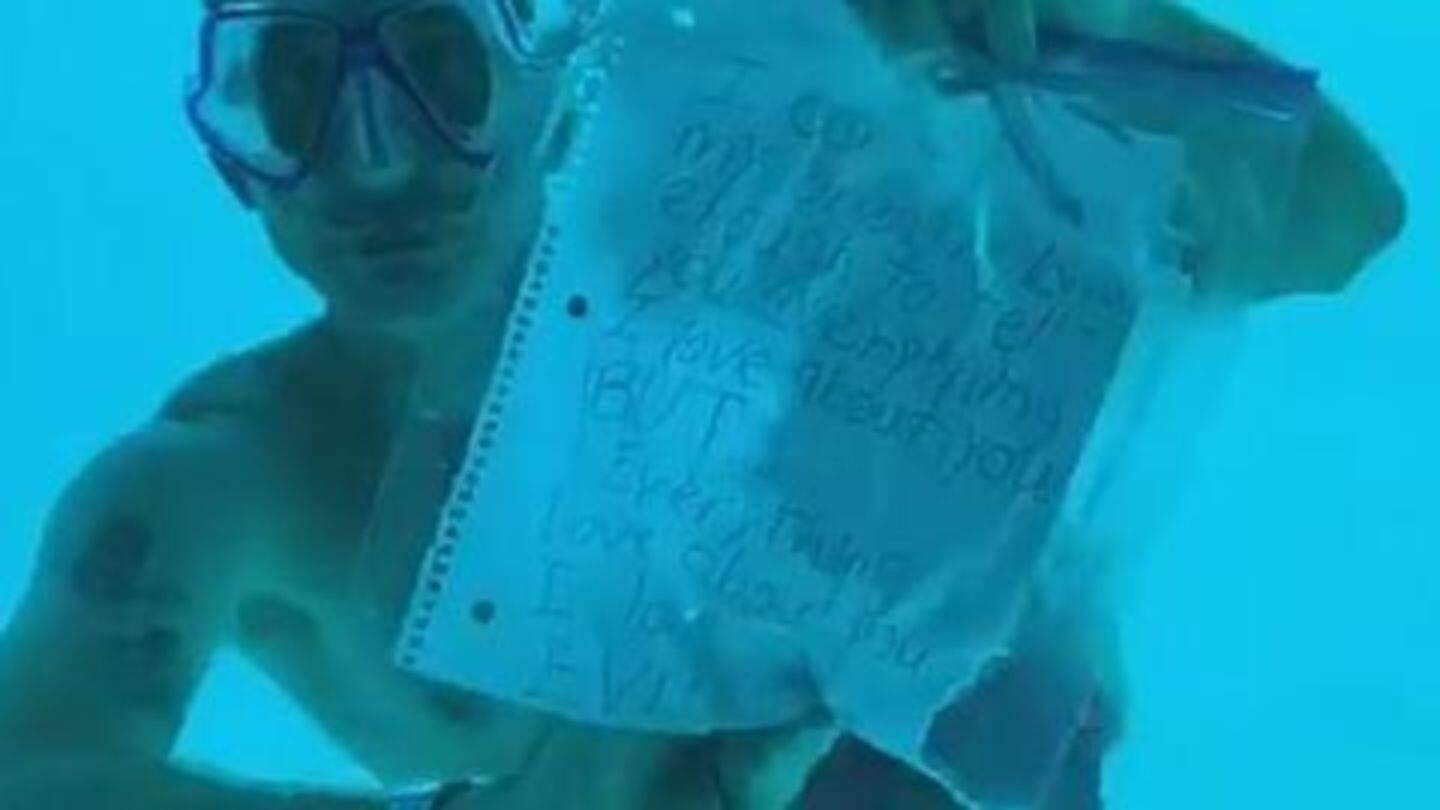 I
my breath long
enough to tell
you everything
I love about you
BUT
Everything
love about you
I